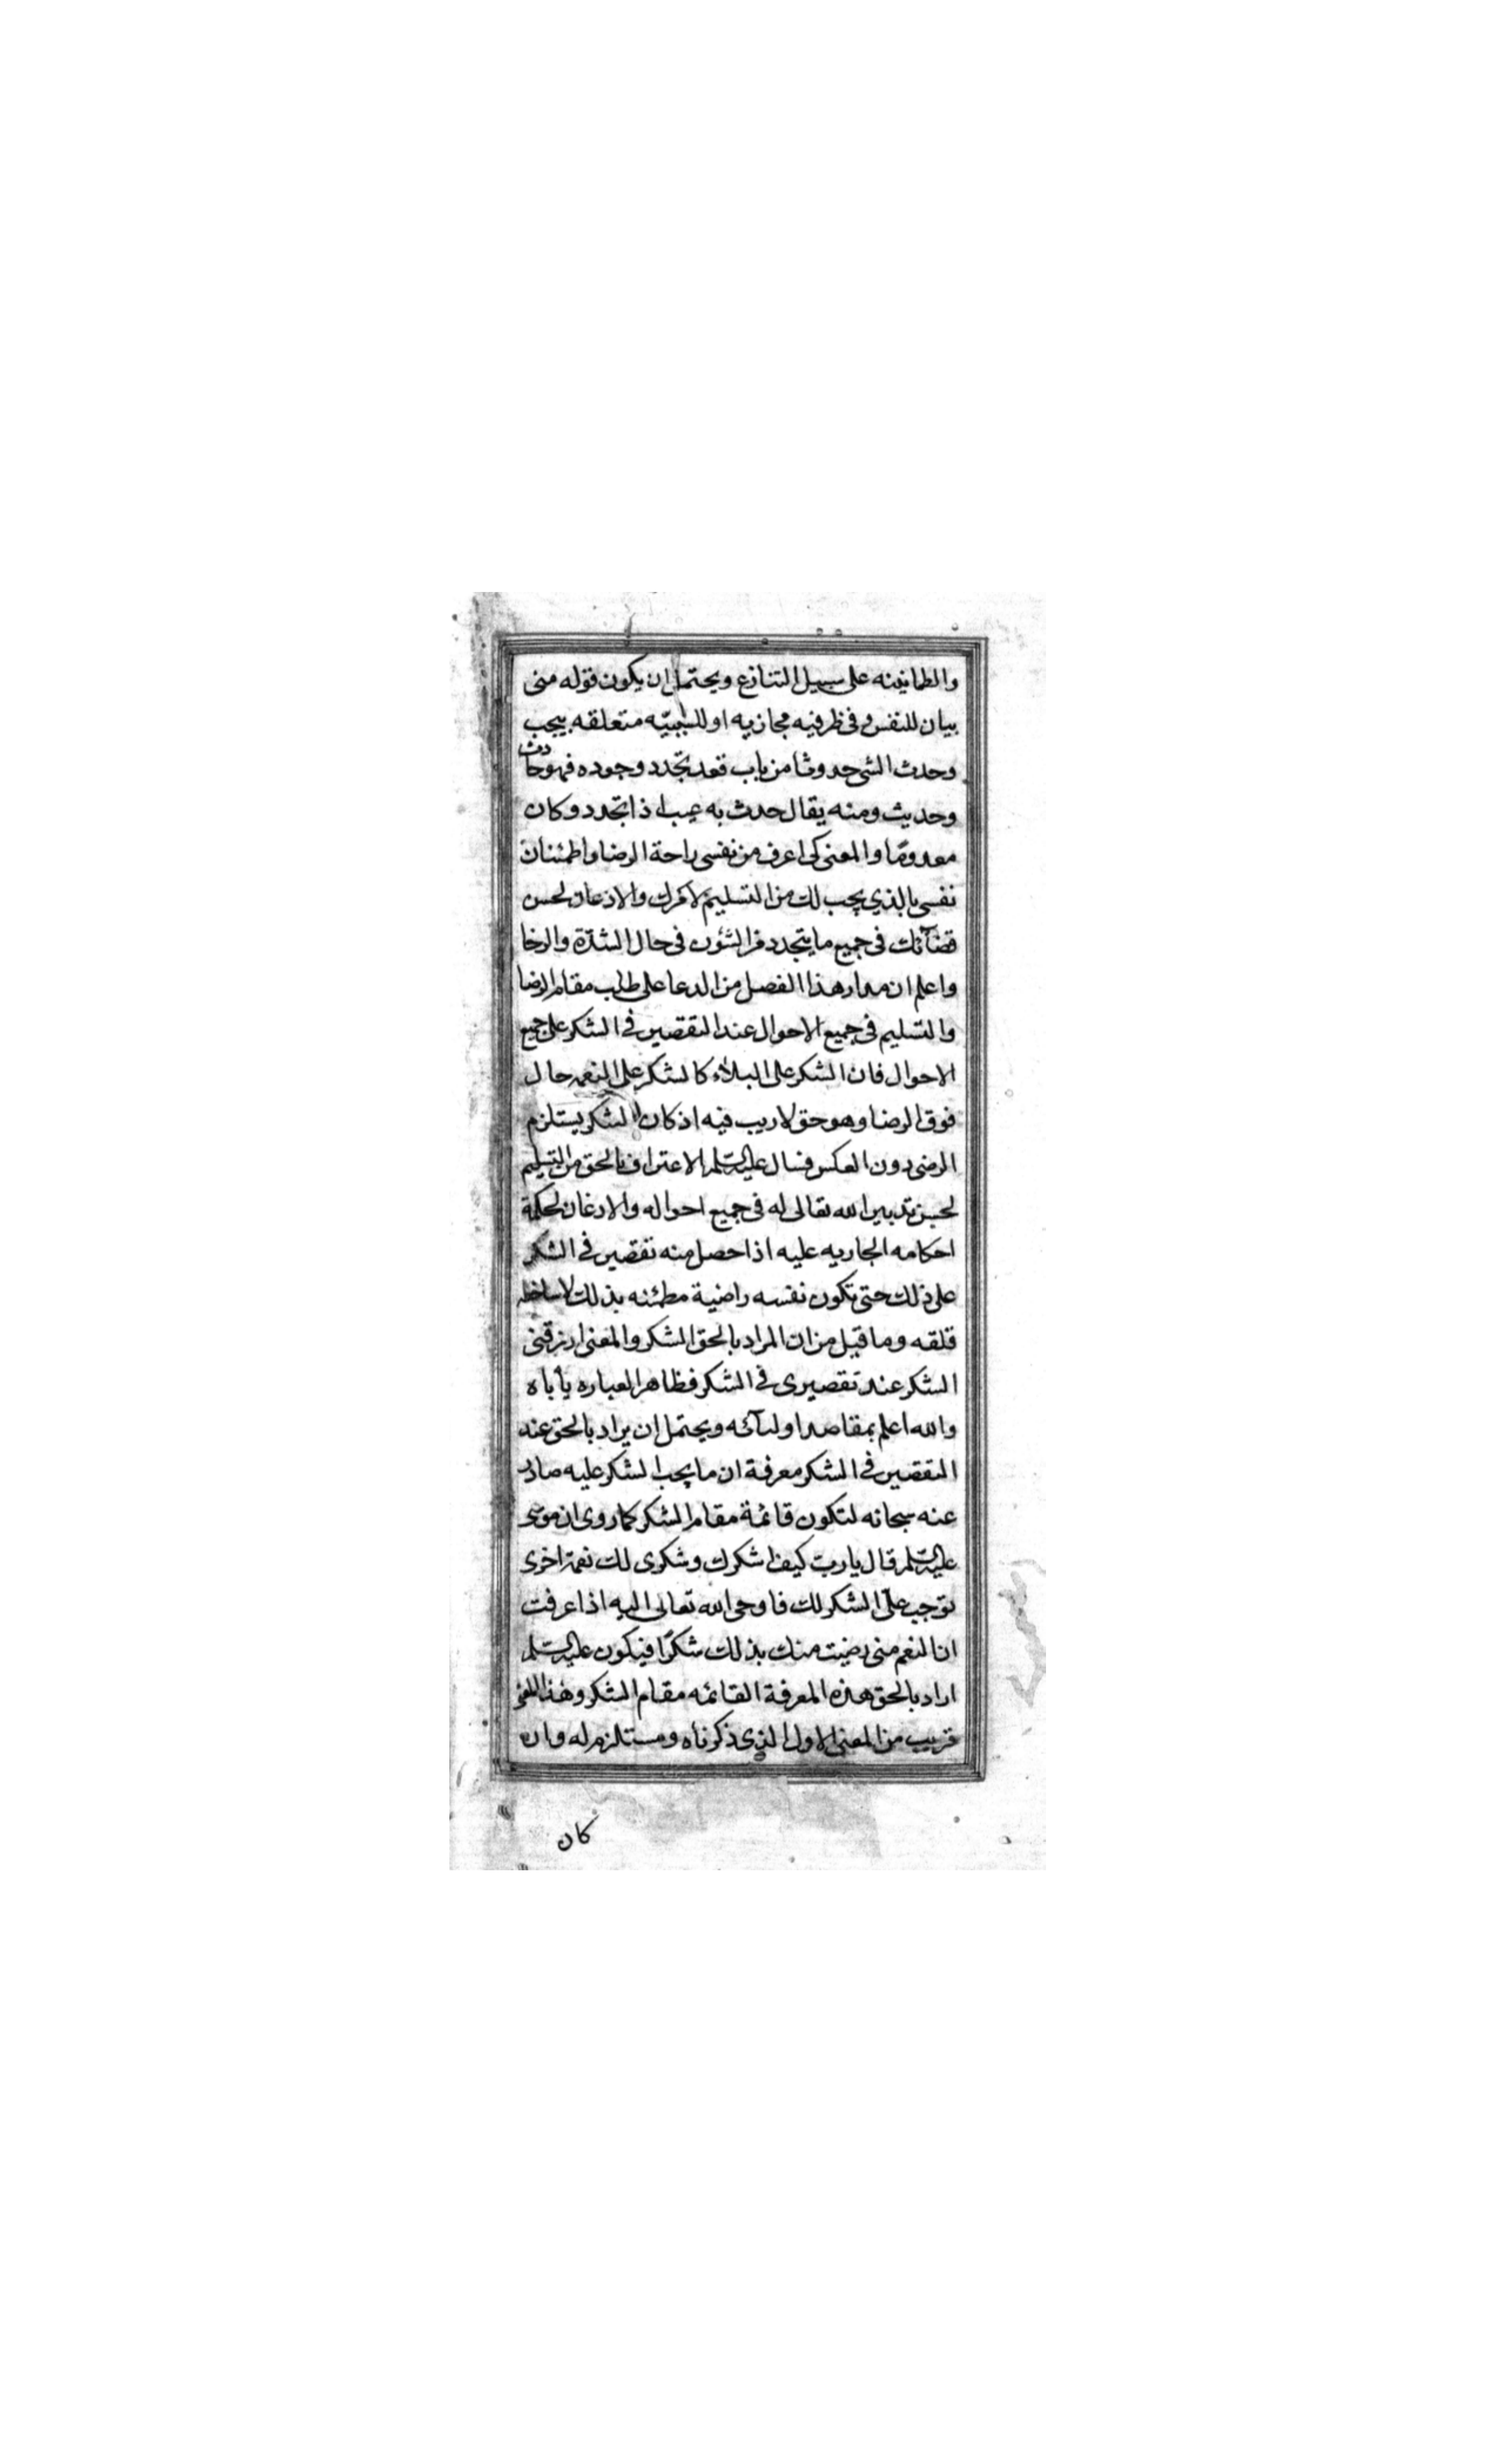 والطمانينه على سبيل التنازع ويحتمل ان يكون قوله منى
بيان للنفس وفى ظرفيه مجازيه او للسببيّه متعلقه بيجب
وحدث الشى حدوثا من باب قعد تجدد وجوده فهو حادث
وحديث ومنه يقال حدث به عيب اذا تجدد وكان
معدومًا والمعنى كى اعرف من نفسى راحة الرضا واطمئنان
نفسى بالذي يجب لك من التسليم لامرك والاذعان لحسن
قضآئك فى جميع ما يتجدد من الشئون فى حال الشدّة والرخا
واعلم ان مدار هذا الفصل من الدعا على طلب مقام الرضا
والتسليم فى جميع الاحوال عند التقصير فى الشكر على جميع
الاحوال فان الشكر على البلاء كالشكر على النعمه حال
فوق الرضا وهو حق لاريب فيه اذ كان الشكر يستلزم
الرضى دون العكس فسال عليه السلم الاعتراف بالحق من التسليم
لحسن تدبير الله تعالى له فى جميع احواله والاذعان لحكمة
احكامه الجاريه عليه اذا حصل منه تقصير فى الشكر
على ذلك حتى تكون نفسه راضية مطمئنه بذلك لا ساخطه
قلقه وما قيل من ان المراد بالحق الشكر والمعنى ارزقنى
الشكر عند تقصيرى فى الشكر فظاهر العباره يأباه
والله اعلم بمقاصد اوليآئه ويحتمل ان يراد بالحق عند
التقصير فى الشكر معرفة ان ما يجب الشكر عليه صادر
عنه سبحانه لتكون قائمة مقام الشكر كما روى ان موسى
عليه السلم قال يارب كيف اشكرك وشكرى لك نعمة اخرى
توجب علىّ الشكر لك فاوحى الله تعالى اليه اذا عرفت
ان النعم منى رضيت منك بذلك شكرًا فيكون عليه السلم
اراد بالحق هذه المعرفة القائمه مقام الشكر وهذا المعنى
قريب من المعنى الاول الذى ذكرناه ومستلزم له وان
كان